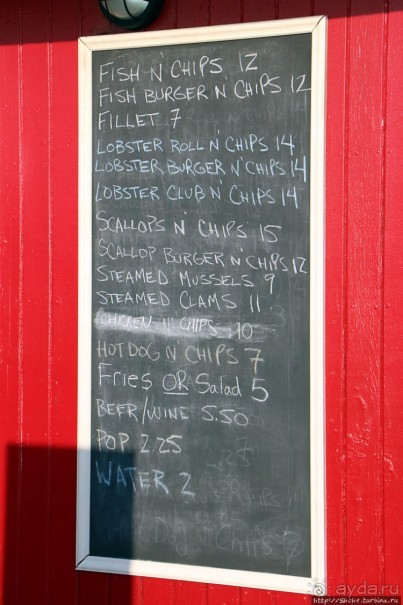 FISH N' CHIPS 12
FISH BURGER N' CHIPS 12
FILLET 7
LOBSTER ROLL N' CHIPS 14
LOBSTER BURGER N' CHIPS 14
LOBSTER CLUB N' CHIPS 14
SCALLOPS N' CHIPS 15
SCALLOP BURGER N' CHIPS 12
STEAMED MUSSELS 9
STEAMED CLAMS 11
CHICKEN N' CHIPS 10
HOTDOG N' CHIPS 7
Fries OR Salad 5
BEER/WINE 5.50
POP 2.25
WATER 2
Dog n' Chips
ayda.ru